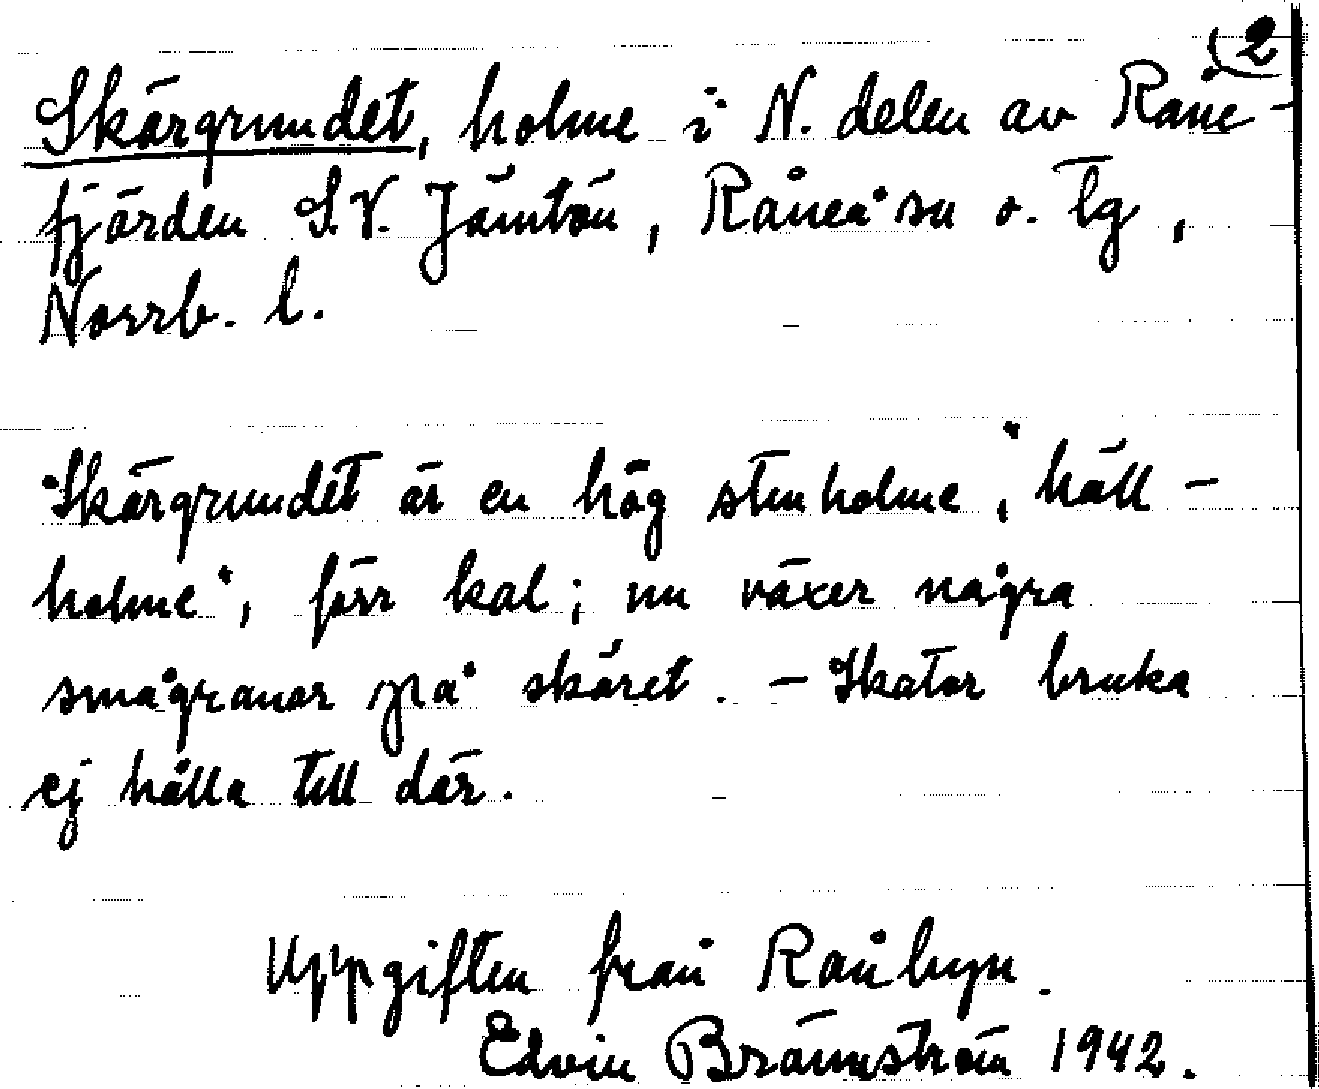 (2
Skärgrundet, holme i N. delen av Råne-
fjärden S.V. Jämtön, Råneå sn o. tg,
Norrb. l.
"Skärgrundet är en hög stenholme, "häll-
holme", förr kal; nu växer några
smågranor på skäret. - Skator bruka
ej hålla till där.
Uppgiften från Rånbyn.
Edvin Brännström 1942.